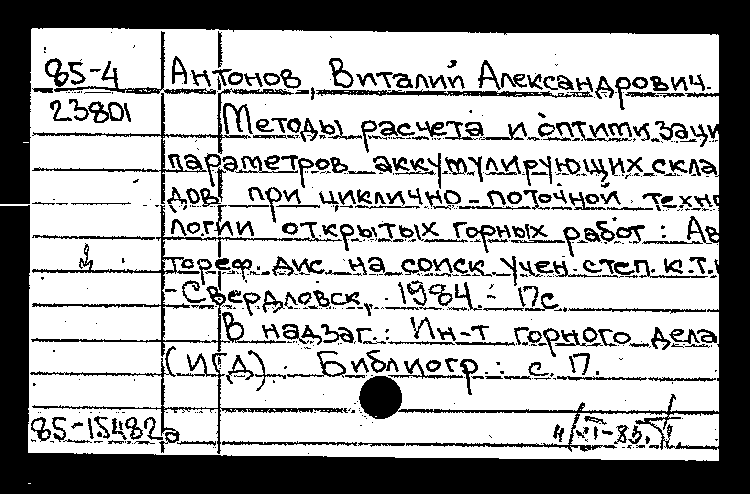 85-4 Антонов, Виталий Александрович.
23801 Методы расчета и оптимизаци
параметров аккумулирующих скла
дов при циклично-поточной техно
логии открытых горных работ: Ав
тореф. дис. на соиск учен. степ. к.т.
-Свердловск, 1984.- 17с
В надзаг.: Ин-т горного дела
(ИГД). Библиогр.: с. 17.
85-15482а